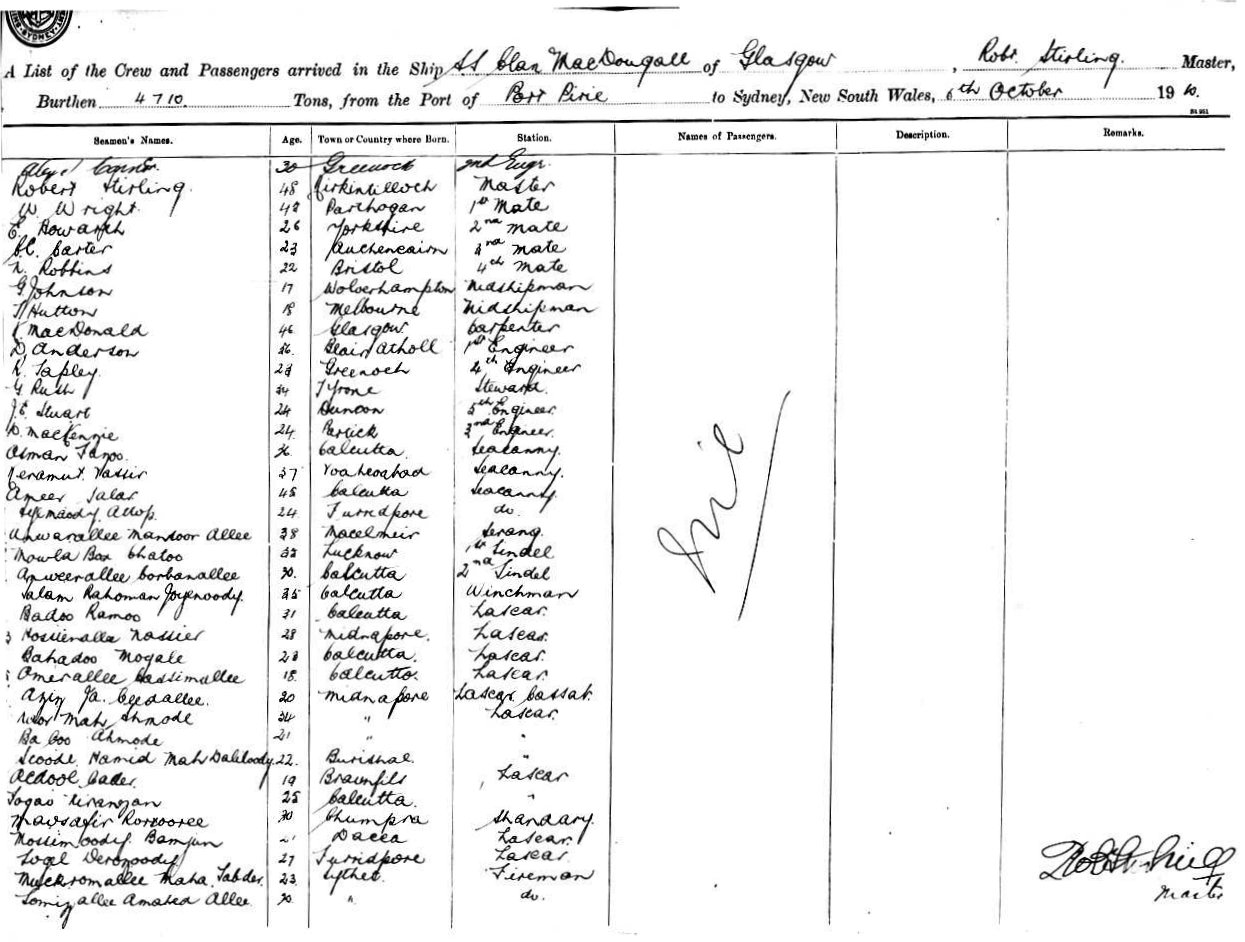 SYDNEY
A List of the Crew and Passengers arrived in the Ship SS Clan MacDougall of Glasgow, Robt. Stirling. Master,
Burthen 4710 Tons, from the Port of Port Pirie to Sydney, New South Wales, 6th October 1910.
Seamen's Names. Age. Town or Country where Born. Station. Names of Passengers. Description. Remarks.
30 Greenock 2nd Engr.
Robert Stirling. 48 Kirkintilloch Master
W. Wright. Parthogan 1st Mate
E. Howarth 26 Yorkshire 2nd Mate
Carter 23 Auchencairn Mate
N. Robbins 22 Bristol 4th Mate
G. Johnson 17 Wolverhampton Midshipman
Hutton 18 Melbourne Midshipman
MacDonald 46 Glasgow Carpenter
D. Anderson Blair Atholl 1st Engineer
R. Tapley. Greenock 4th Engineer
G. Rush Tyrone Steward.
J. E. Stuart 24 Dunoon 5th Engineer.
D. MacKenzie 24 Partick 3rd Engineer.
Osman Calcutta. Seacanny.
Nassir 37 Seacanny.
Ameer Jalar 45 Calcutta Seacanny.
24 Furridpore do.
Anwarallee Mansoor Allee 38 Serang.
Mowla Bax Chatoo Lucknow 1st Tindel
Anweerallee Corbanallee 30. Calcutta 2nd Tindel
Salam Rahoman 25 Calcutta Winchman
Badoo Ramoo 31 Calcutta Lascar.
Hossienalla Nassier 28 Midnapore. Lascar.
Bahadoo Mogale 28 Calcutta. Lascar.
Omerallee Hassimallee 18. Calcutta. Lascar.
20 Midnapore Lascar Cassab.
Noor Mah Ahmode 34 " Lascar.
Baboo Ahmode 21 " "
Hamid Mah 22. Burishal. "
Cader. 19 Lascar
25 Calcutta. "
30 Chumpra Bhandary.
21 Dacca Lascar.
27 Furridpore Lascar.
Muckromallee Maha. 23 Sythet Fireman
Amased Allee. 30. " do.
Nil
Robt Stirling
Master